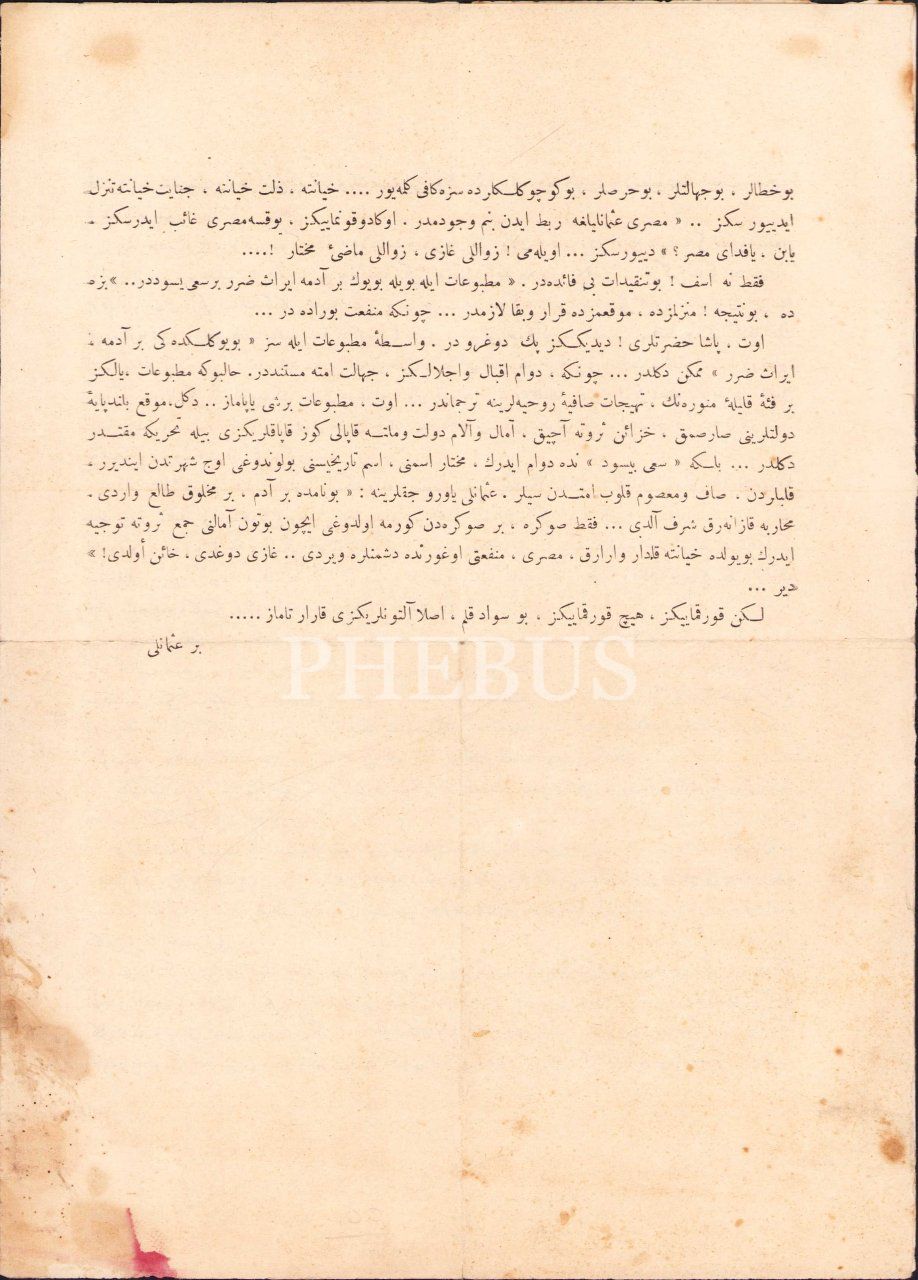 بوخطالر ، بوجهالتلر ، بوحرصلر ، بوكوچوكلكلرده سزه كافى كلمه‌يور .... خيانته ، ذلت خيانته ، جنايت خيانته تنزل
ايدييور سكز .. « مصرى عثمانليلغه ربط ايدن بنم وجودمدر . اوكادوقونمايكز ، يوقسه مصرى غائب ايدرسكز -
يابن ، يافداى مصر ؟ » دييورسكز ... اويله‌مى ! زواللى غازى ، زواللى ماضئ مختار !....
فقط نه اسف ! بوتنقيدات بى فائده‌در . « مطبوعات ايله بويله بويوك بر آدمه ايراث ضرر برسعى بيسوددر.. » بزه
ده ، بونتيجه ! منزلمزده ، موقعمزده قرار وبقا لازمدر ... چونكه منفعت بوراده در ...
اوت ، پاشا حضرتلرى ! ديديككز پك دوغرو در . واسطۀ مطبوعات ايله سز « بويوكلكده كى بر آدمه ،
ايراث ضرر » ممكن دكلدر ... چونكه ، دوام اقبال واجلالكز ، جهالت امته مستنددر. حالبوكه مطبوعات ، يالكز
بر فئۀ قليلۀ منوره‌نك ، تهيجات صافيۀ روحيه‌لرينه ترجماندر ... اوت ، مطبوعات برشى ياپاماز .. دكل، موقع بلندپايۀ
دولتلرينى صارصمق ، خزائن ثروته آچيق ، آمال وآلام دولت وملته قاپالى كوز قاپاقلريكزى بيله تحريكه مقتدر
دكلدر ... بلكه « سعى بيسود » نده دوام ايدرك ، مختار اسمنى ، اسم تاريخيسنى بولوندوغى اوج شهرتدن اينديرر -
قلبلردن . صاف ومعصوم قلوب امتدن سيلر . عثمانلى ياورو جقلرينه : « بونامده بر آدم ، بر مخلوق طالع واردى -
محاربه قازانه‌رق شرف آلدى ... فقط صوكره ، بر صوكره‌دن كورمه اولدوغى ايچون بوتون آمالنى جمع ثروته توجيه
ايدرك بويولده خيانته قلدار وارارق ، مصرى ، منفعتى اوغورنده دشمنلره ويردى .. غازى دوغدى ، خائن أولدى! »
دير ...
لكن قورقمايكز ، هيچ قورقمايكز ، بو سواد قلم ، اصلا آلتونلريكزى قارار تاماز .....
بر عثمانلى
PHEBUS